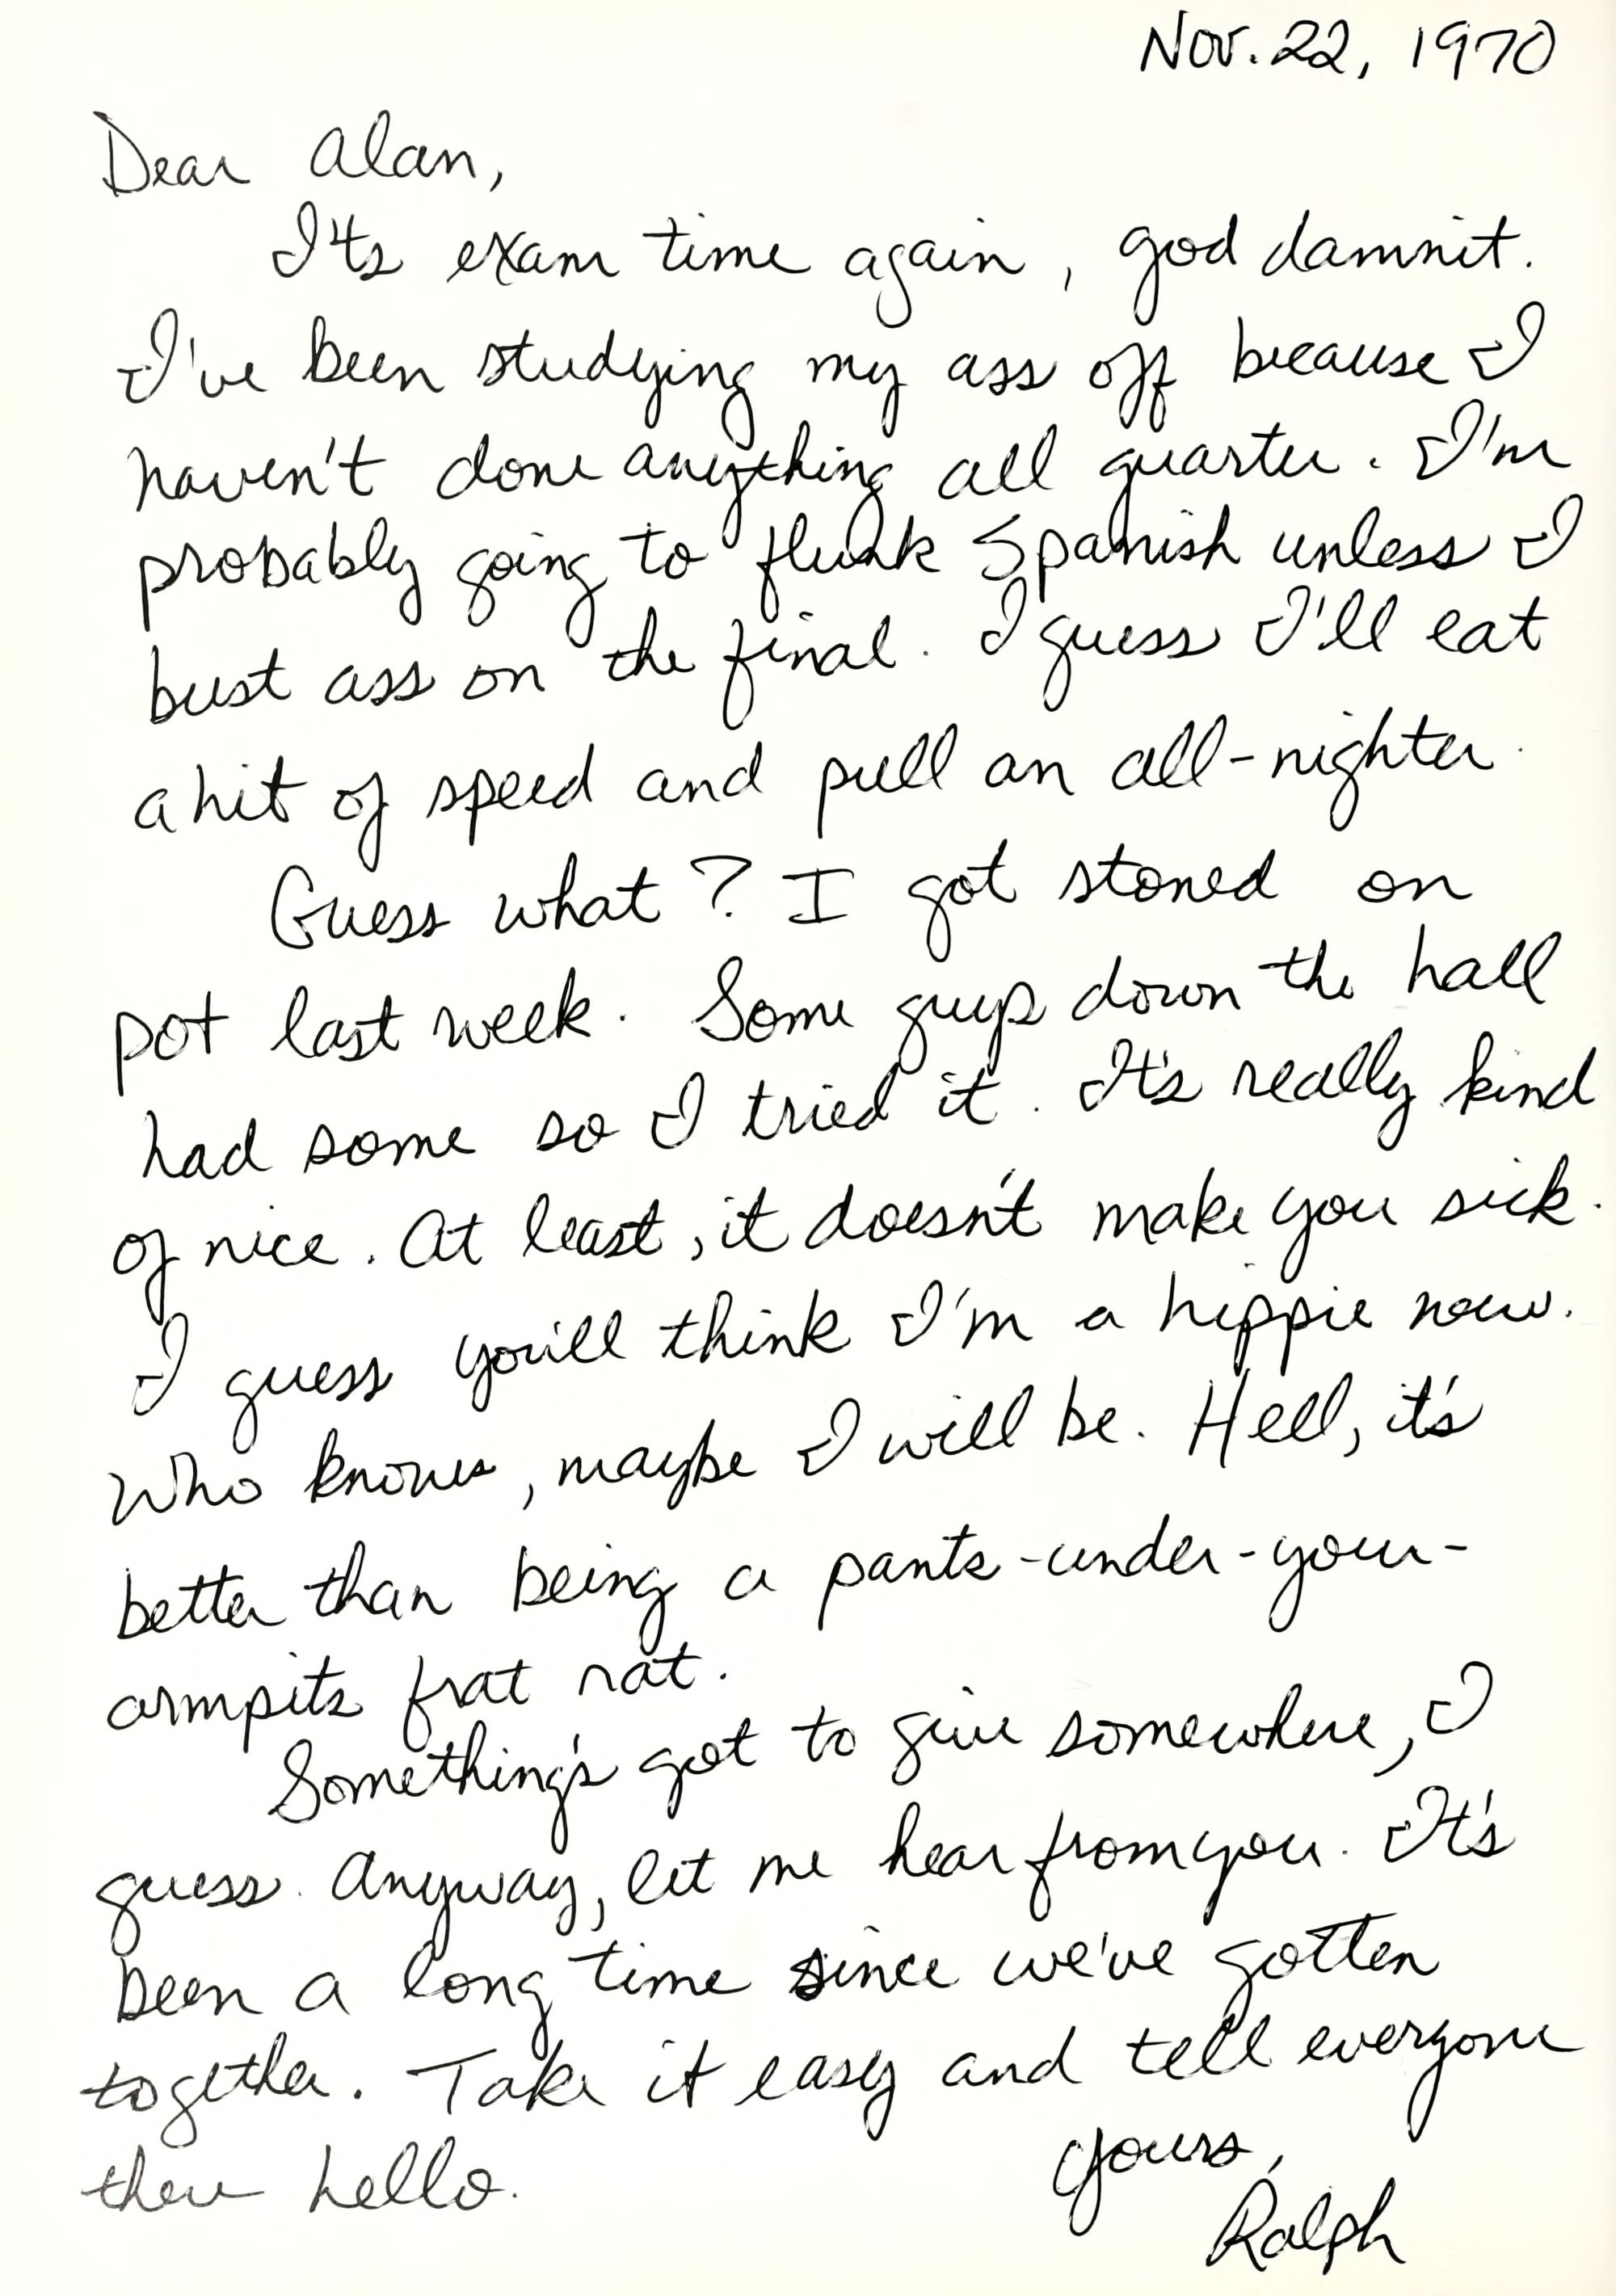 Nov. 22, 1970
Dear Alan,
It's exam time again, god damnit.
I've been studying my ass off because I
haven't done anything all quarter. I'm
probably going to flunk Spanish unless I
bust ass on the final. I guess I'll eat
a hit of speed and pull an all-nighter.
Guess what? I got stoned on
pot last week. Some guys down the hall
had some so I tried it. It's really kind
of nice. At least, it doesn't make you sick.
I guess you'll think I'm a hippie now.
Who knows, maybe I will be. Hell, it's
better than being a pants-under-your-
armpits frat rat.
Something's got to give somewhere, I
guess. Anyway, let me hear from you. It's
been a long time since we've gotten
together. Take it easy and tell everyone
there hello.
Yours,
Ralph